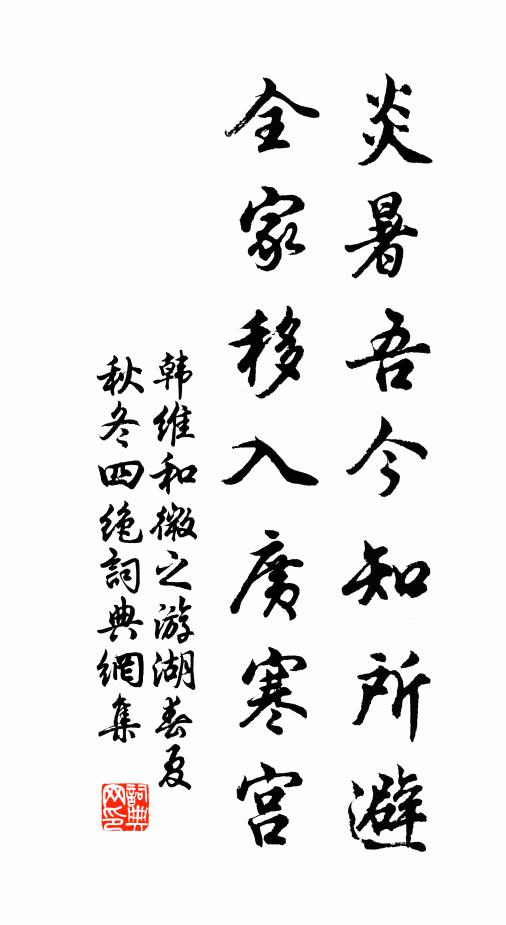 炎暑吾今知所避
全家移入廣寒宫
韩維和微之游湖春夏
秋冬四绝詞典網集
詞典
网印